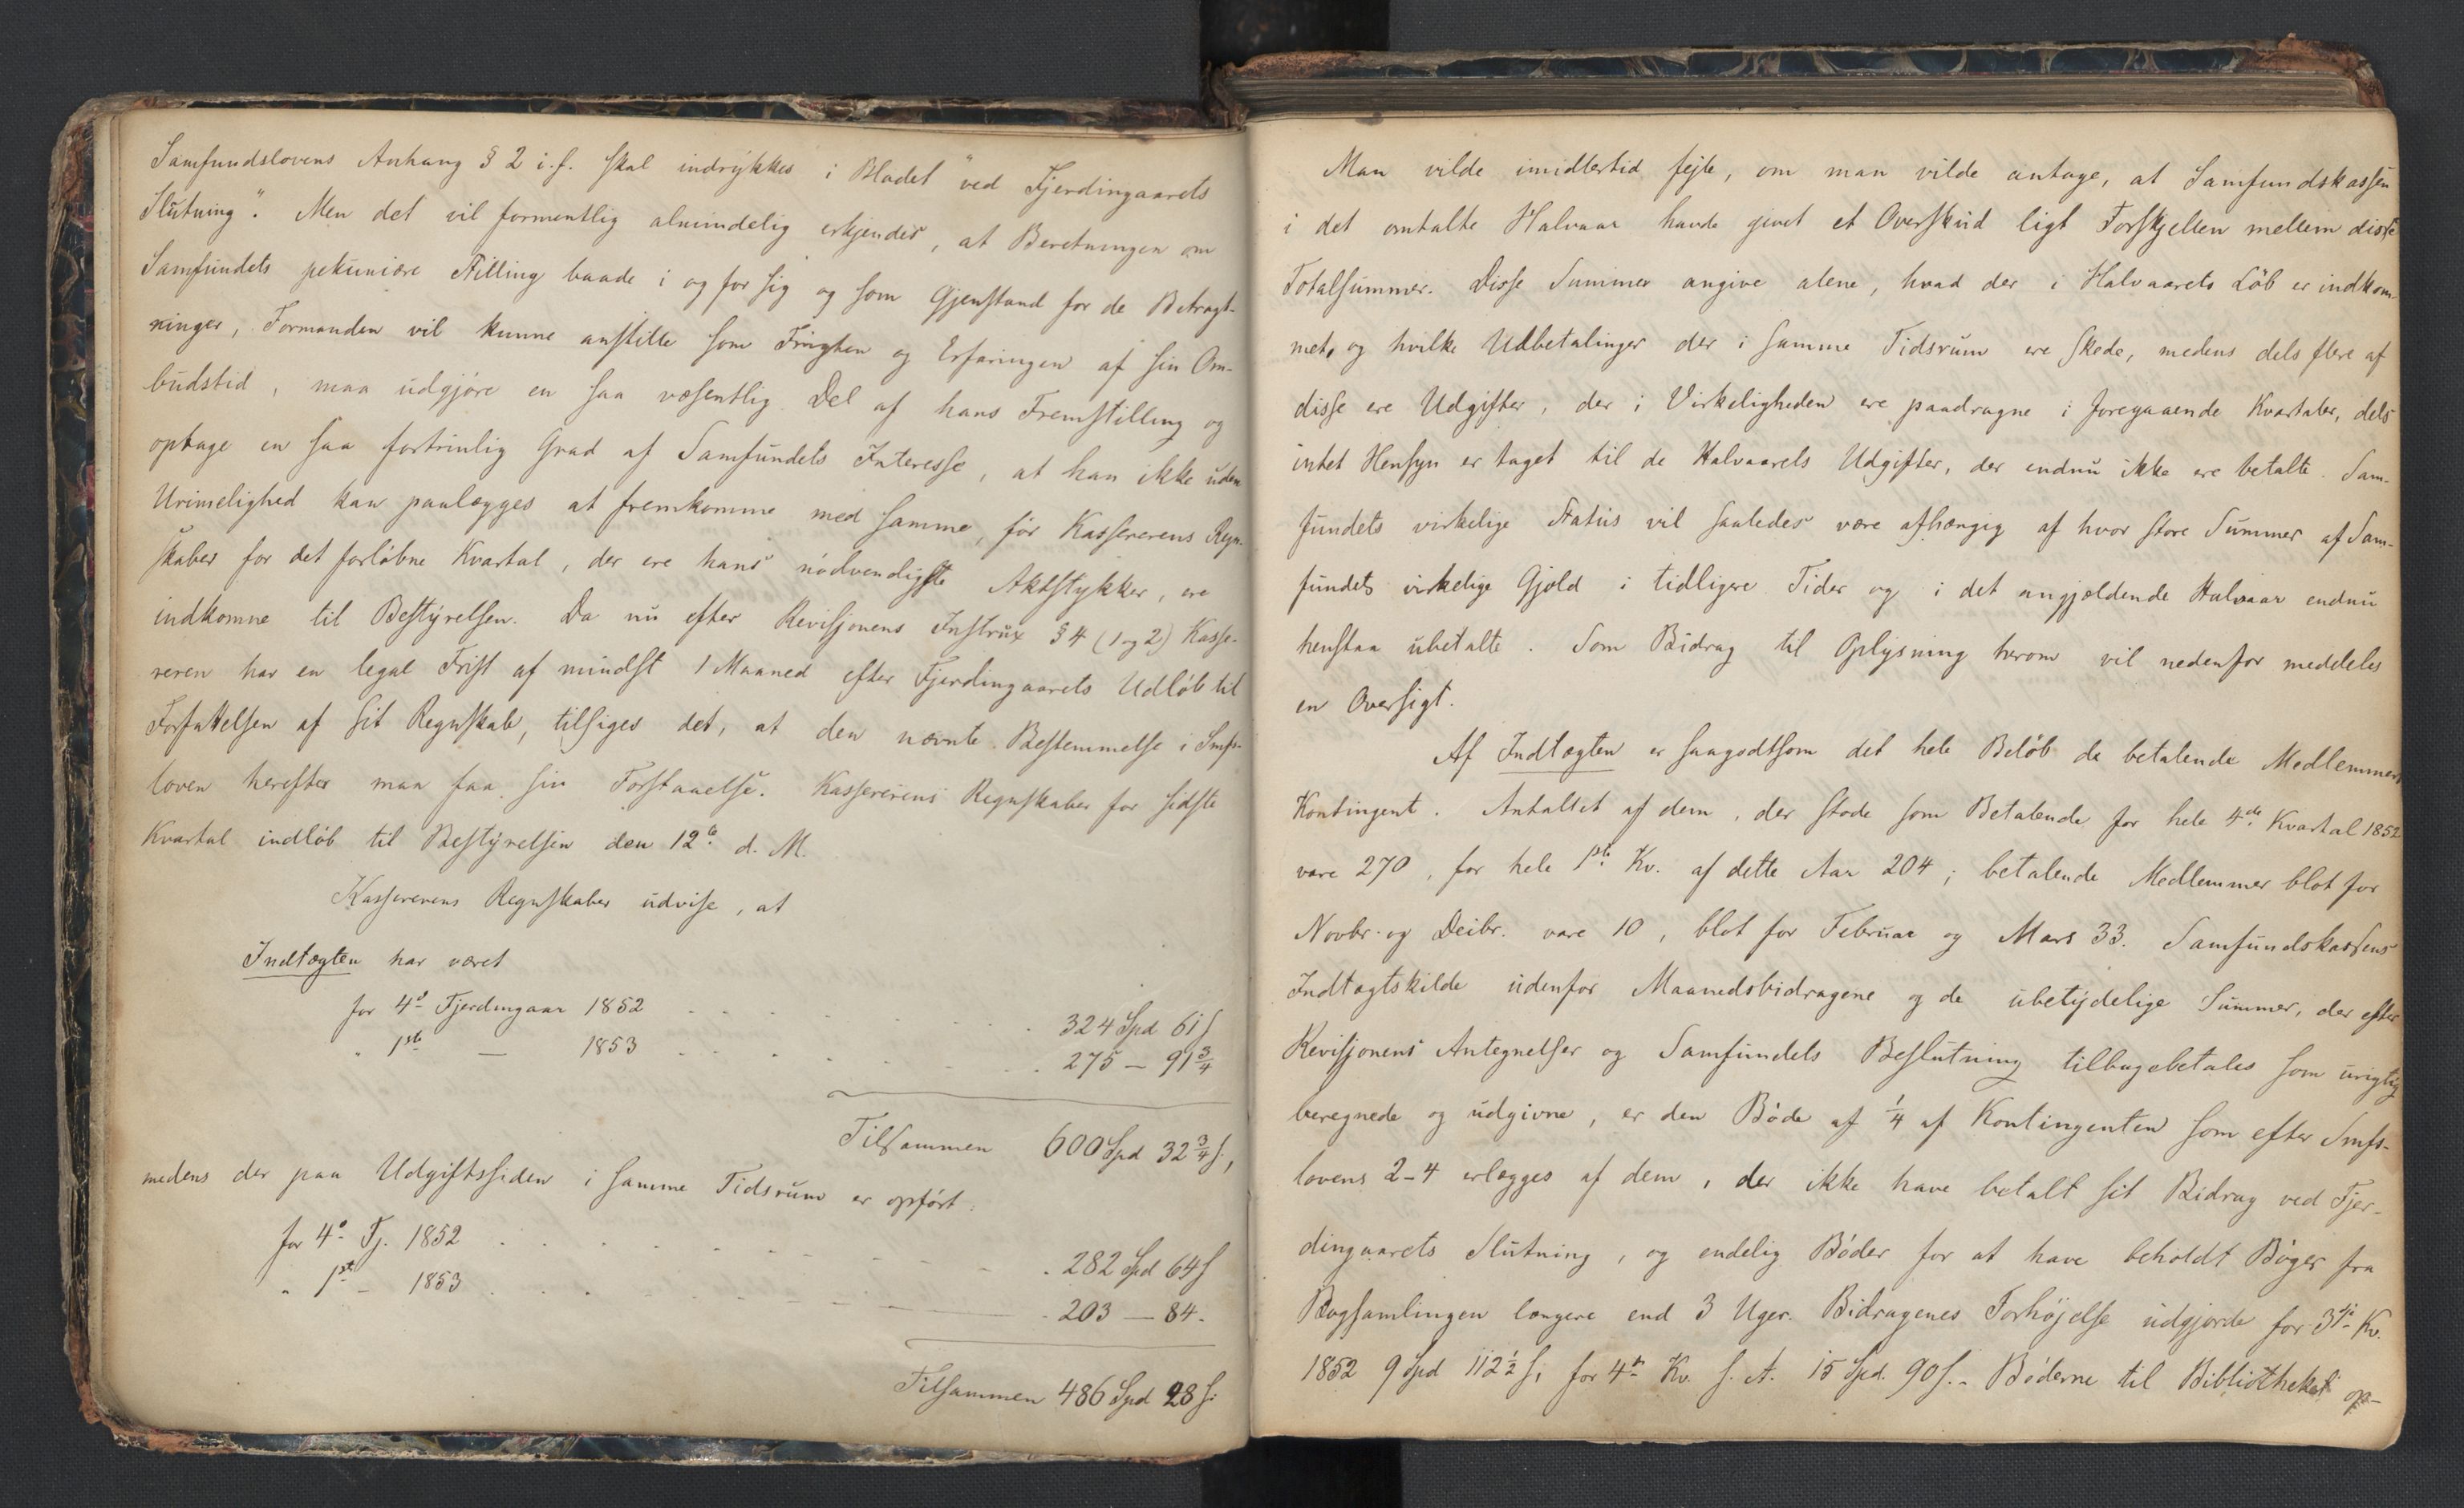 Samfundslovens Anhang § 2 i.f. skal indrykkes i Bladet "ved Fjerdingaarets
Slutning". Men det vil formentlig almindelig erkjendes, at Beretningen om
Samfundets pekuniære Stilling baade i og for sig og som Gjenstand for de Betragt-
ninger, Formanden vil kunne anstille som Frugten og Erfaringen af sin Om-
budstid, maa udgjøre en saa væsentlig Del af hans Fremstilling og
optage en saa fortrinlig Grad af Samfundets Interesse, at han ikke uden
Urimelighed kan paalægges at fremkomme med samme, før Kassererens Regn-
skaber for det forløbne Kvartal, der ere hans nødvendigste Aktstykker, ere
indkomne til Bestyrelsen. Da nu efter Revisjonens Instrux § 4 (1 og 2) Kasse-
reren har en legal Frist af mindst 1 Maaned efter Fjerdingaarets Udløb til
Forfattelsen af sit Regnskab, tilsiges det, at den nævnte Bestemmelse i Smfs-
loven herefter maa faa sin Forstaaelse. Kassererens Regnskaber for sidste
Kvartal indløb til Bestyrelsen den 12te d. M.
Kassererens Regnskaber udvise, at
Indtægten har været
for 4de Fjerdingaar 1852 . . . . 324 Spd 61 s
" 1ste — 1853 . . . . 275 — 91 3/4
Tilsammen 600 Spd 32 3/4 s,
medens der paa Udgiftssiden i samme Tidsrum er opført:
for 4de Fj. 1852 . . . . 282 Spd 64 s
" 1ste — 1853 . . . . 203 — 84.
Tilsammen 486 Spd 28 s.
Man vilde imidlertid fejle, om man vilde antage, at Samfundskassen
i det omtalte Halvaar havde givet et Overskud ligt Forskjellen mellem disse
Totalsummer. Disse Summer angive alene, hvad der i Halvaarets Løb er indkom-
met, og hvilke Udbetalinger der i samme Tidsrum ere skede, medens dels flere af
disse ere Udgifter, der i Virkeligheden ere paadragne i foregaaende Kvartaler, dels
intet Hensyn er taget til de Halvaarets Udgifter, der endnu ikke ere betalte. Sam-
fundets virkelige Status vil saaledes være afhængig af hvor store Summer af Sam-
fundets virkelige Gjæld i tidligere Tider og i det angjældende Halvaar endnu
henstaa ubetalte. Som Bidrag til Oplysning herom vil nedenfor meddeles
en Oversigt.
Af Indtægten er saagodtsom det hele Beløb de betalende Medlemmers
Kontingent. Antallet af dem, der stode som Betalende for hele 4de Kvartal 1852
vare 270, for hele 1ste Kv. af dette Aar 204; betalende Medlemmer blot for
Novbr. og Decbr. vare 10, blot for Februar og Mars 33. Samfundskassens
Indtægtskilde udenfor Maanedsbidragene og de ubetydelige Summer, der efter
Revisjonens Antegnelser og Samfundets Beslutning tilbagebetales som urigtig
beregnede og udgivne, er den Bøde af 1/4 af Kontingenten som efter Smfs-
lovens 2-4 erlægges af dem, der ikke have betalt sit Bidrag ved Fjer-
dingaarets Slutning, og endelig Bøder for at have beholdt Bøger fra
Bogsamlingen længere end 3 Uger. Bidragenes Forhøjelse udgjorde for 3die Kv.
1852 9 Spd 112 1/2 s; for 4de Kv. s. A. 15 Spd. 90 s. - Bøderne til Bibliotheket op-